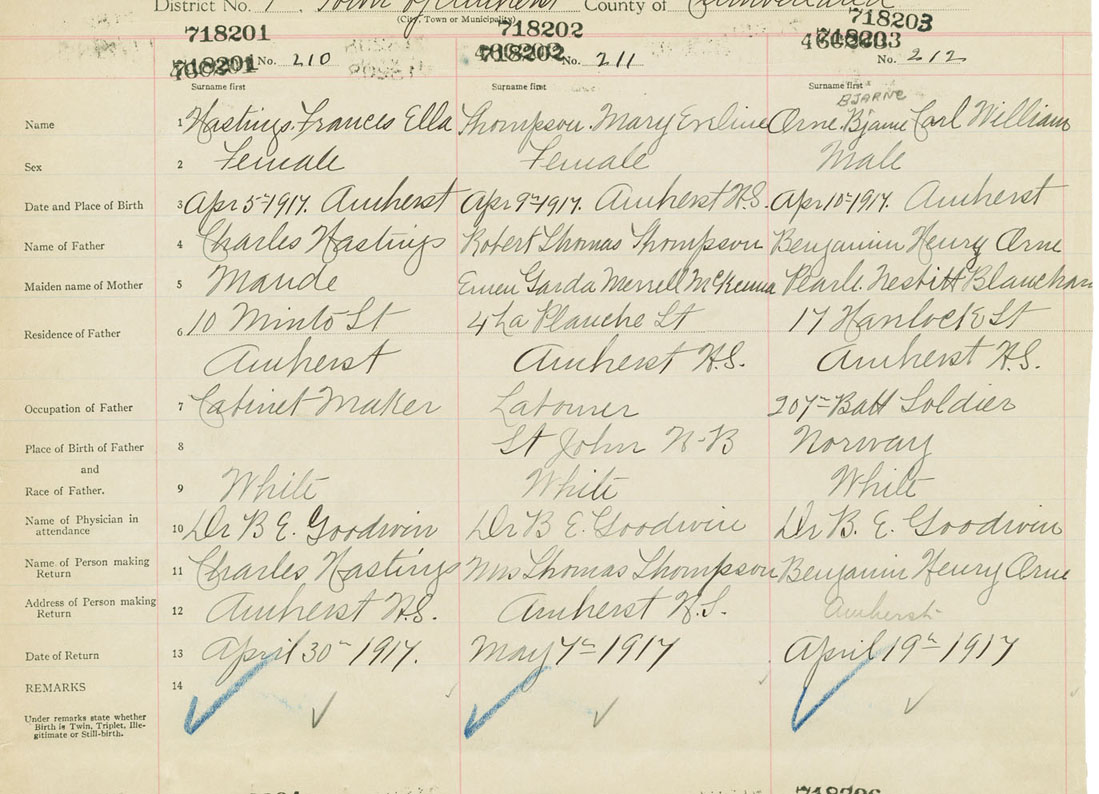 District No. 1 Town of Amherst County of Cumberland
(City, Town or Municipality)
718201 718202 718203
718201 No. 210 718202 No. 211 No. 212
Surname first Surname first Surname first
BJARNE
Name 1 Hastings. Frances Ella Thompson. Mary Eveline Orne. Bjarne Carl William
Sex 2 Female Female Male
Date and Place of Birth 3 Apr 5th 1917. Amherst Apr 9th 1917. Amherst N.S. Apr 10th 1917. Amherst
Name of Father 4 Charles Hastings Robert Thomas Thompson Benjamin Henry Orne
Maiden name of Mother 5 Maude Garda Merrell McKenna Pearle. Nesbitt
Residence of Father 6 10 Minto St 4 La Planche St 17 St
Amherst Amherst N.S. Amherst N.S.
Occupation of Father 7 Cabinet Maker Labourer 207th Batt Soldier
Place of Birth of Father 8 St John N-B Norway
and
Race of Father. 9 White White White
Name of Physician in attendance 10 Dr B E. Goodwin Dr B E. Goodwin Dr B. E. Goodwin
Name of Person making Return 11 Charles Hastings Mrs Thomas Thompson Benjamin Henry Orne
Address of Person making Return 12 Amherst N.S. Amherst N.S. Amherst
Date of Return 13 April 30th 1917. May 7th 1917 April 19th 1917
REMARKS 14
Under remarks state whether
Birth is Twin, Triplet, Ille-
gitimate or Still-birth.